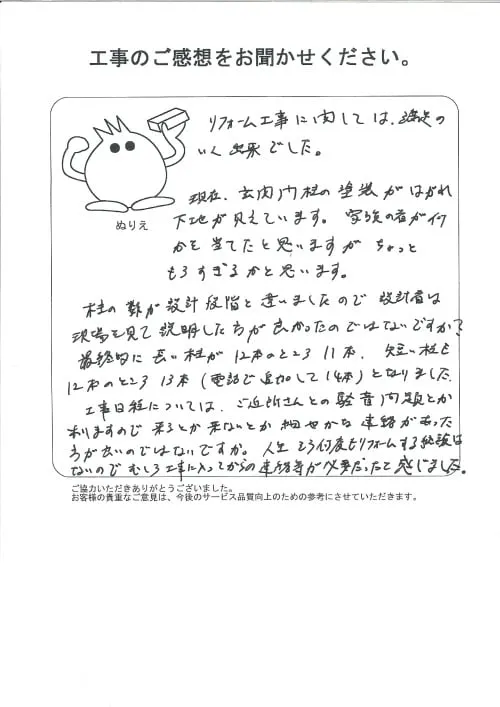 工事のご感想をお聞かせください。
リフォーム工事に関しては、満足の
いく出来でした。
ぬりえ
現在、玄関門柱の塗装がはがれ
下地が見えています。家族の者が何
かを当てたと思いますがちょっと
もろすぎるかと思います。
柱の数が設計段階と違いましたので設計者は
現場を見て説明した方が良かったのではないですか?
最終的に長い柱が12本のところ11本、短い柱も
12本のところ13本(電話で追加して14本)となりました。
工事日程については、ご近所さんとの騒音問題とか
有りますので来るとか来ないとか細やかな連絡があった
方が良いのではないですか。人生そう何度もリフォームする経験は
ないのでむしろ工事に入ってからの連絡等が必要だったと感じました。
ご協力いただきありがとうございました。
お客様の貴重なご意見は、今後のサービス品質向上のための参考にさせていただきます。